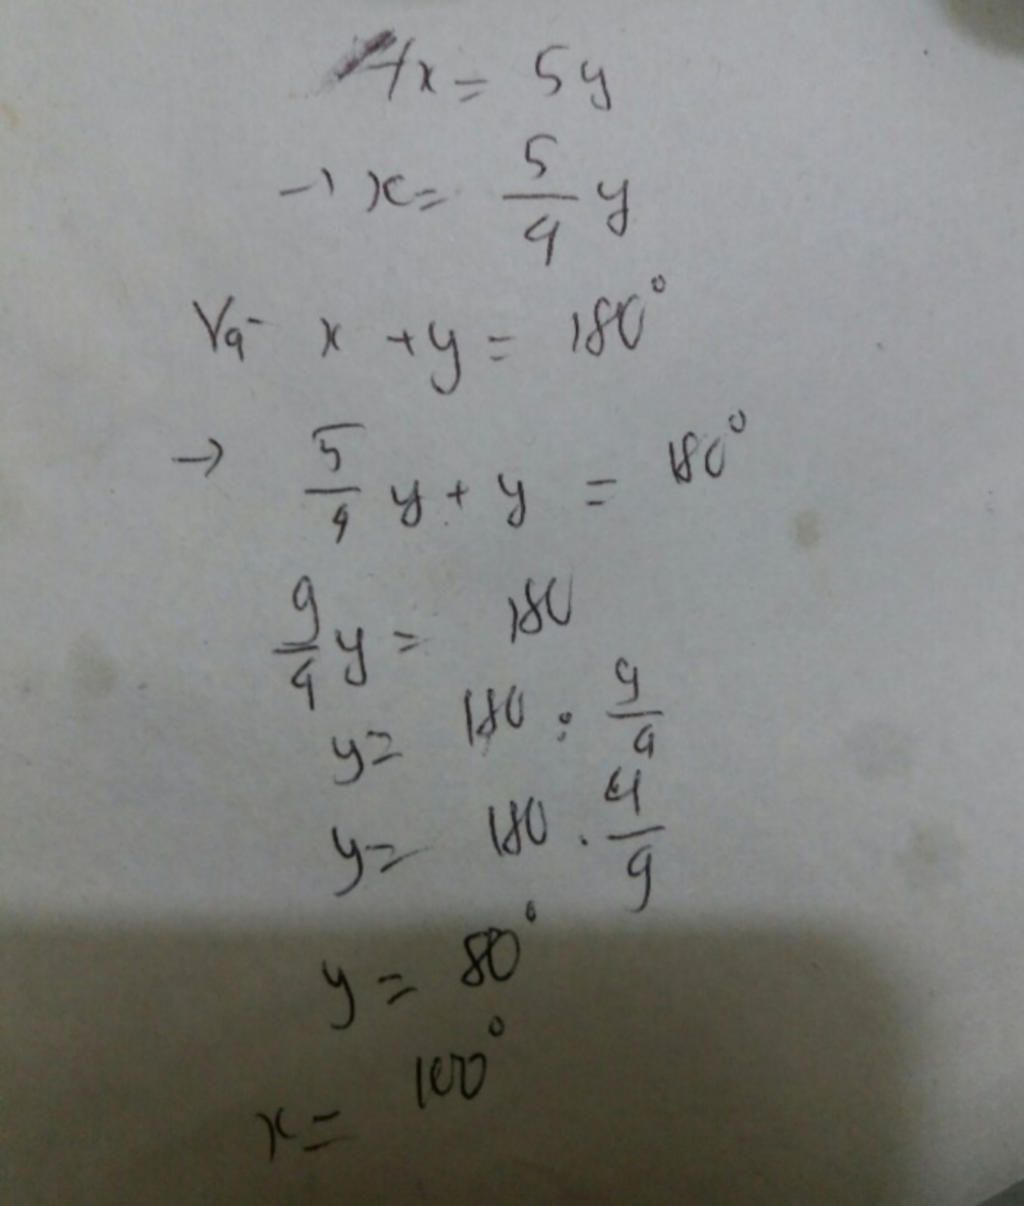 4x = 5y
→ x = 5/4 y
Và x + y = 180°
→ 5/4 y + y = 180°
9/4 y = 180
y = 180 : 9/4
y = 180 . 4/9
y = 80°
x = 100°